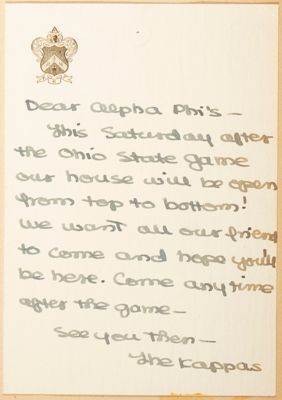 Dear Alpha Phi's —
This Saturday after
the Ohio State game
our house will be open
from top to bottom!
We want all our friend
to come and hope you'll
be here. Come any time
after the game —
See you then —
The Kappas